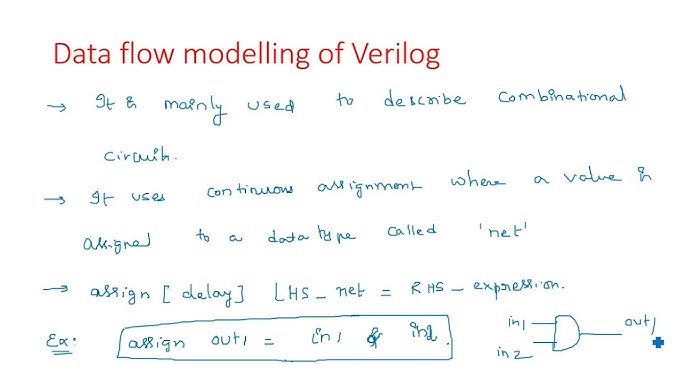 Data flow modelling of Verilog
→ It is mainly used to describe Combinational
circuits.
→ It uses continuous assignment where a value is
assigned to a data type called 'net'
→ assign [ delay ] LHS_net = RHS_expression.
Ex: assign out1 = in1 & in2.
in1
in2
out1